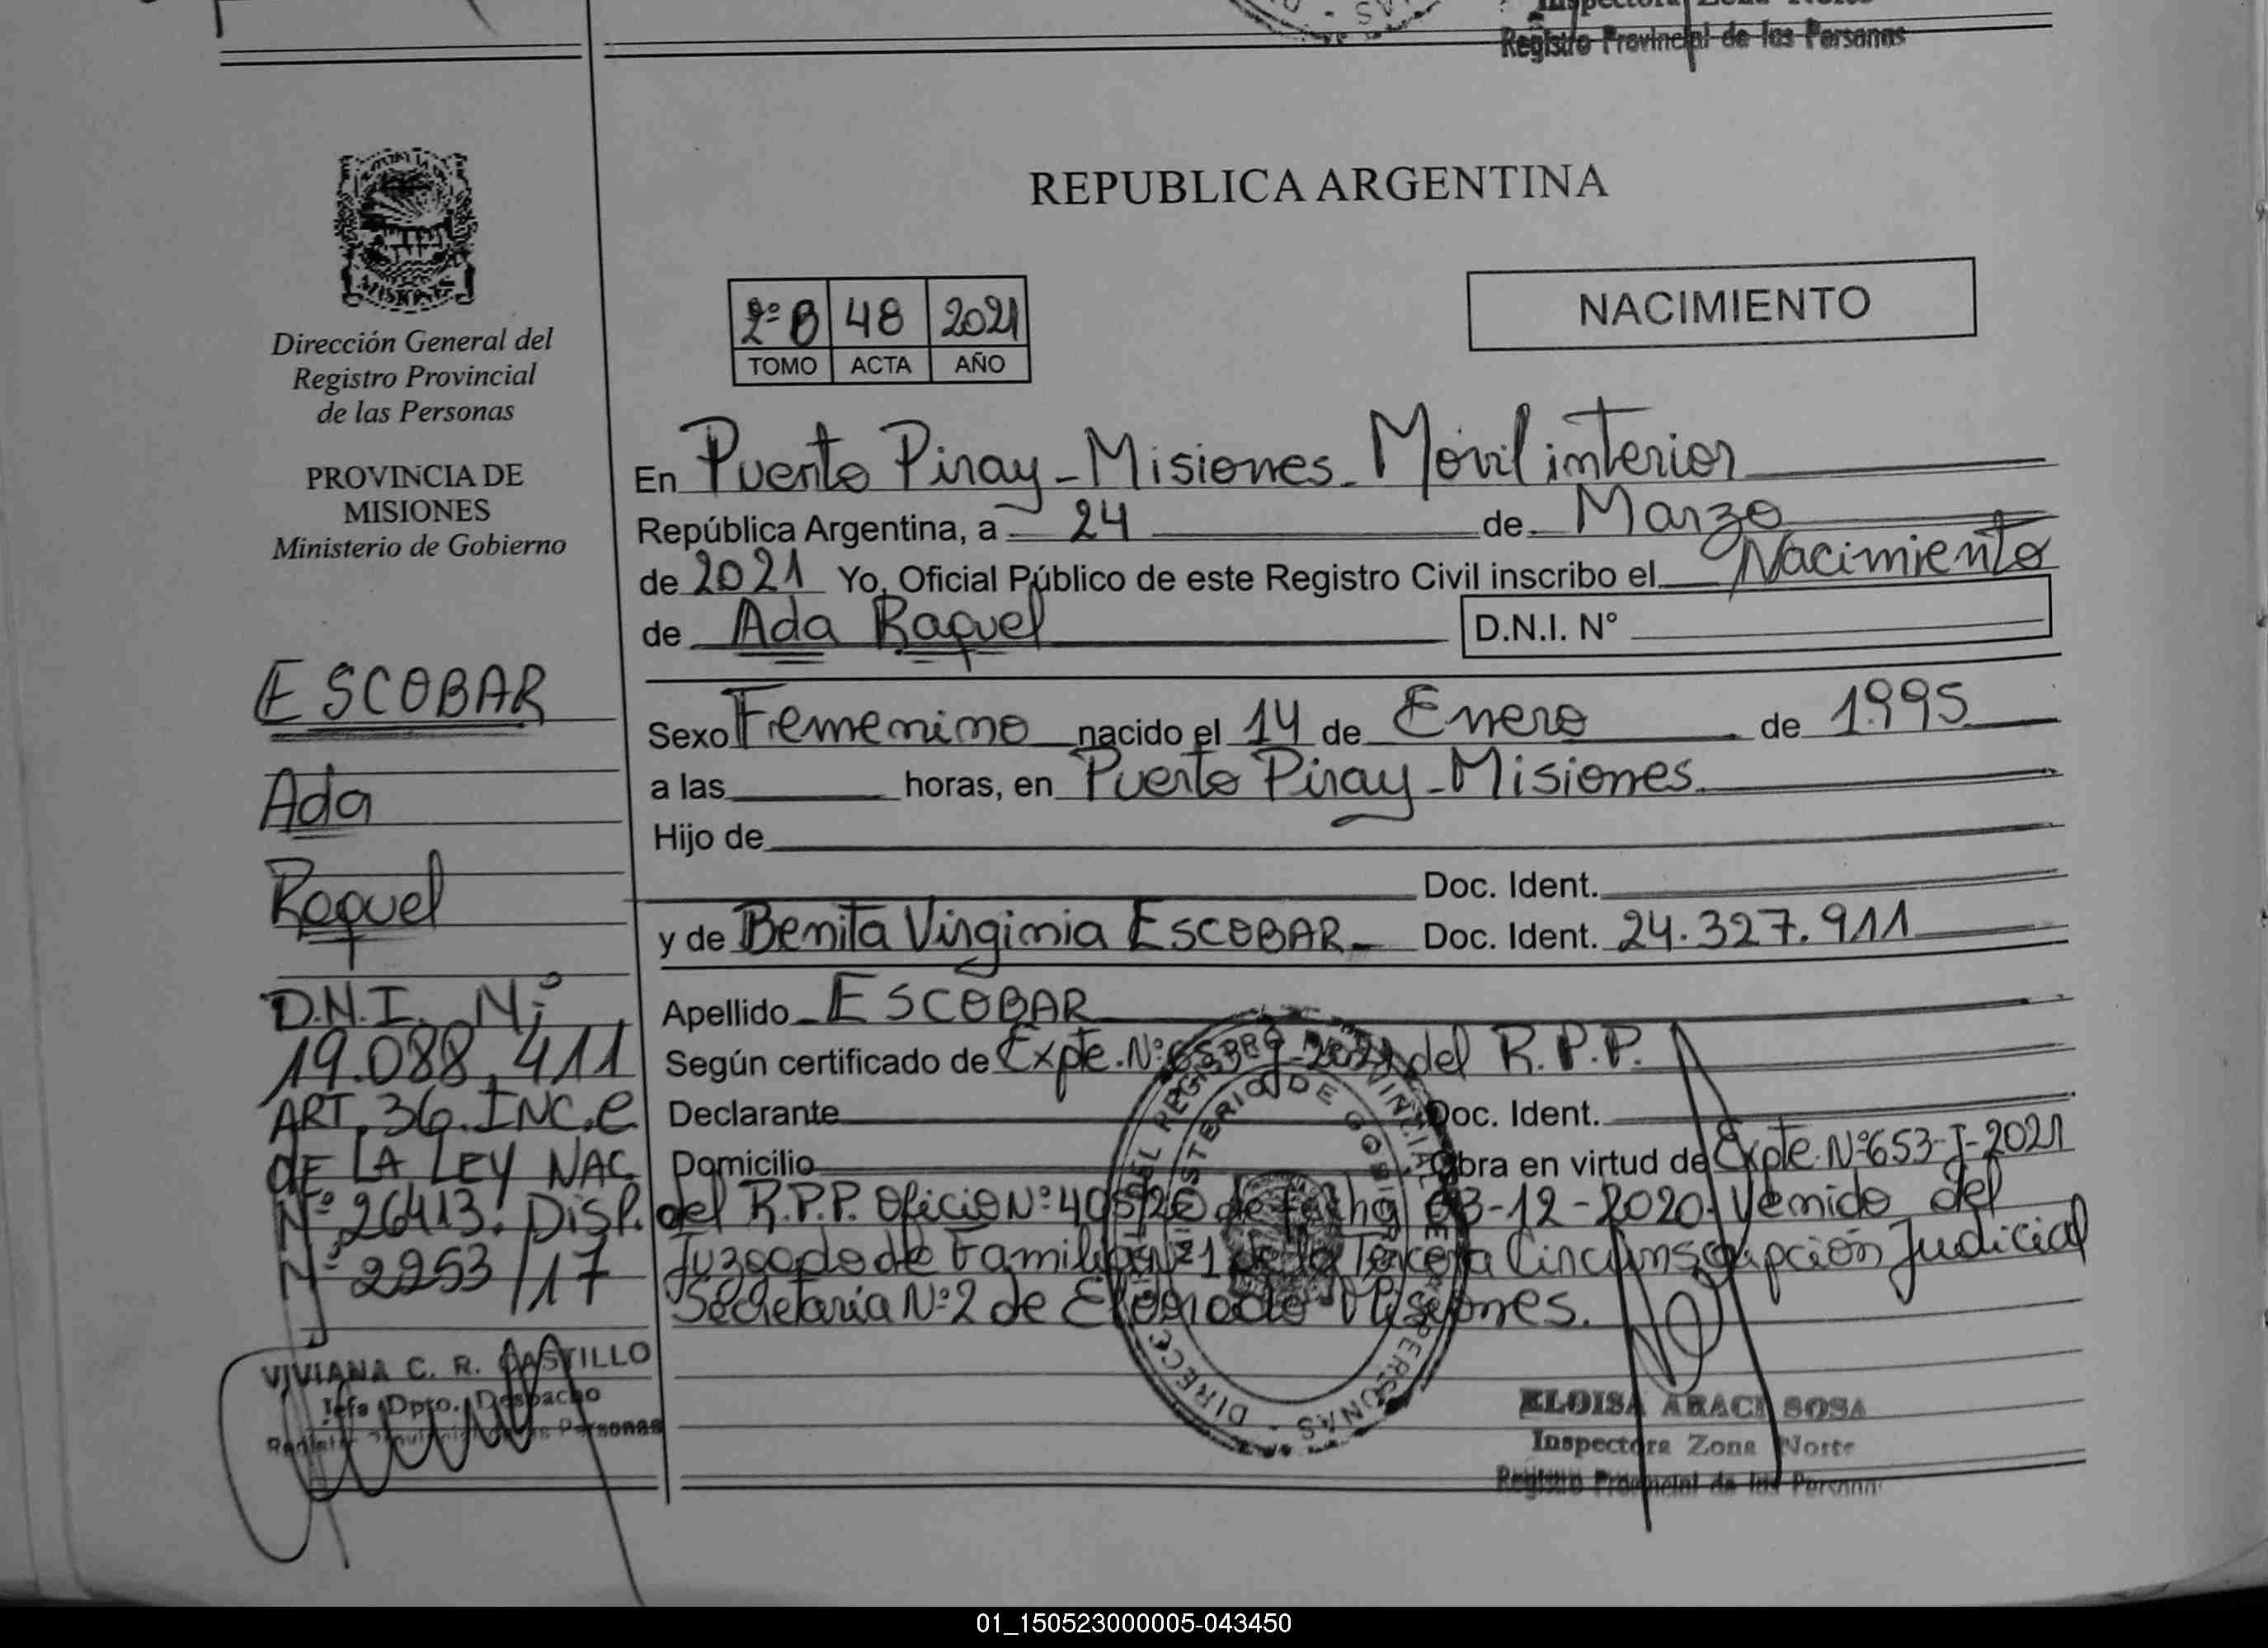 Registro Provincial de las Personas
REPUBLICA ARGENTINA
NACIMIENTO
2º B 48 2021
TOMO ACTA AÑO
Dirección General del
Registro Provincial
de las Personas
PROVINCIA DE
MISIONES
Ministerio de Gobierno
ESCOBAR
Ada
Raquel
D.N.I. Nº
19.088.411
ART. 36. INC. C
dE LA LEY NAC
Nº 26413. DISP.
Nº 2253/17
VIVIANA C. R. CASTILLO
Jefa Dpto. Despacho
Registro Provincial de las Personas
En Puerto Piray - Misiones - Movil interior
República Argentina, a 24 de Marzo
de 2021 Yo, Oficial Público de este Registro Civil inscribo el Nacimiento
de Ada Raquel D.N.I. N°
Sexo Femenino nacido el 14 de Enero de 1.995
a las horas, en Puerto Piray - Misiones.
Hijo de
Doc. Ident.
y de Benita Virginia ESCOBAR - Doc. Ident. 24.327.911
Apellido ESCOBAR
Según certificado de Expte. Nº 653-J-2021 del R.P.P.
Declarante Doc. Ident.
Domicilio Obra en virtud de Expte. Nº 653-J-2021
del R.P.P. Oficio Nº de fecha 03-12-2020. Venido del
Juzgado de Familia Nº 1 de la Tercera Circunscripción Judicial
Secretaria Nº 2 de Eldorado Misiones.
DIRECC DEL REGISTRO PROVINCIAL DE PERSONAS
MINISTERIO DE GOBIERNO
ELOISA ARACI SOSA
Inspectora Zona Norte
Registro Provincial de las Personas
01_150523000005-043450